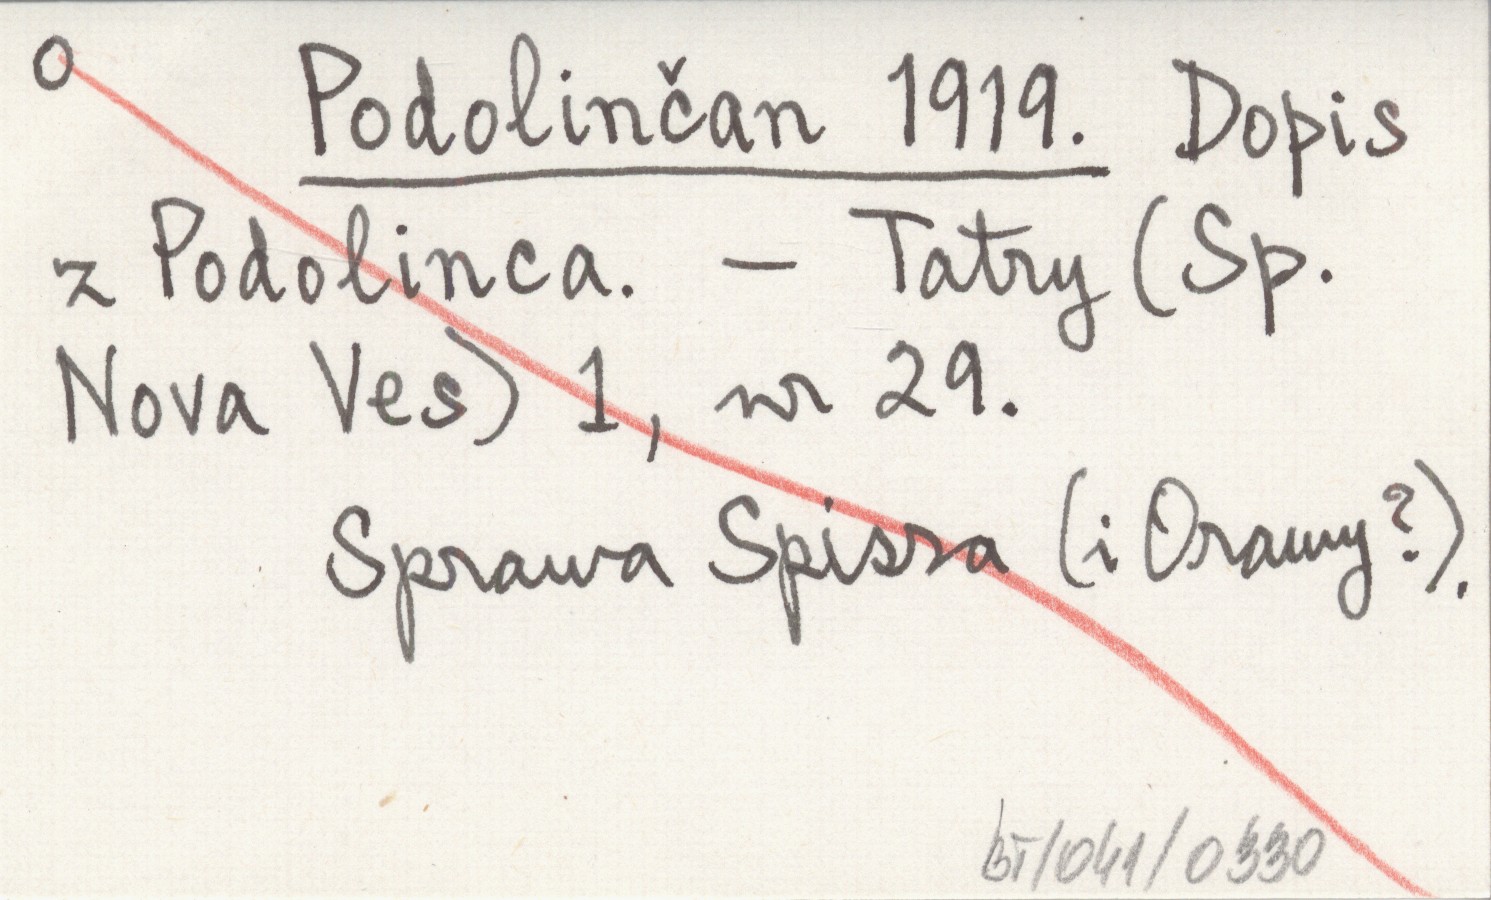 O Podolinčan 1919. Dopis
z Podolinca. – Tatry (Sp.
Nova Ves) 1, nr 29.
Sprawa Spisza (i Orawy?).
bT/041/0330